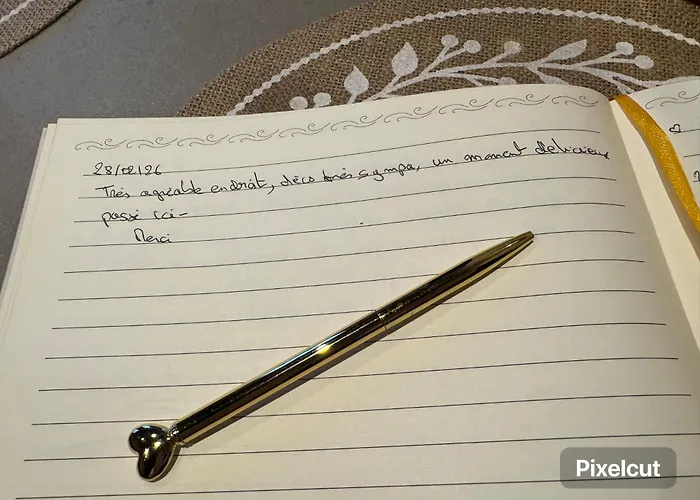 28/02/26
Très agréable endroit, déco très sympa, un moment délicieux
passé ici-
Merci
Pixelcut